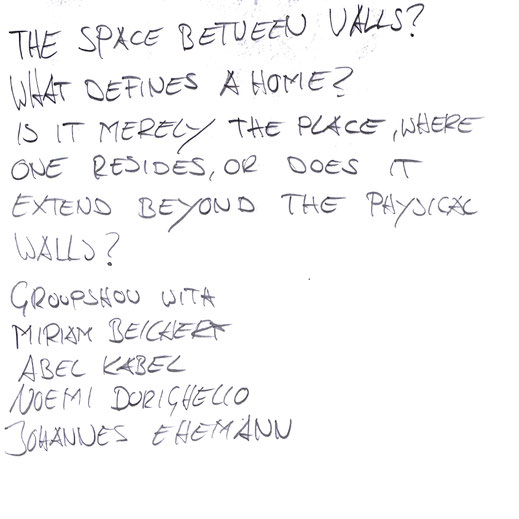 THE SPACE BETWEEN WALLS?
WHAT DEFINES A HOME?
IS IT MERELY THE PLACE, WHERE
ONE RESIDES, OR DOES IT
EXTEND BEYOND THE PHYSICAL
WALLS?
GROUPSHOW WITH
MIRIAM BEICHERT
ABEL KABEL
NOEMI DURIGHELLO
JOHANNES EHEMANN